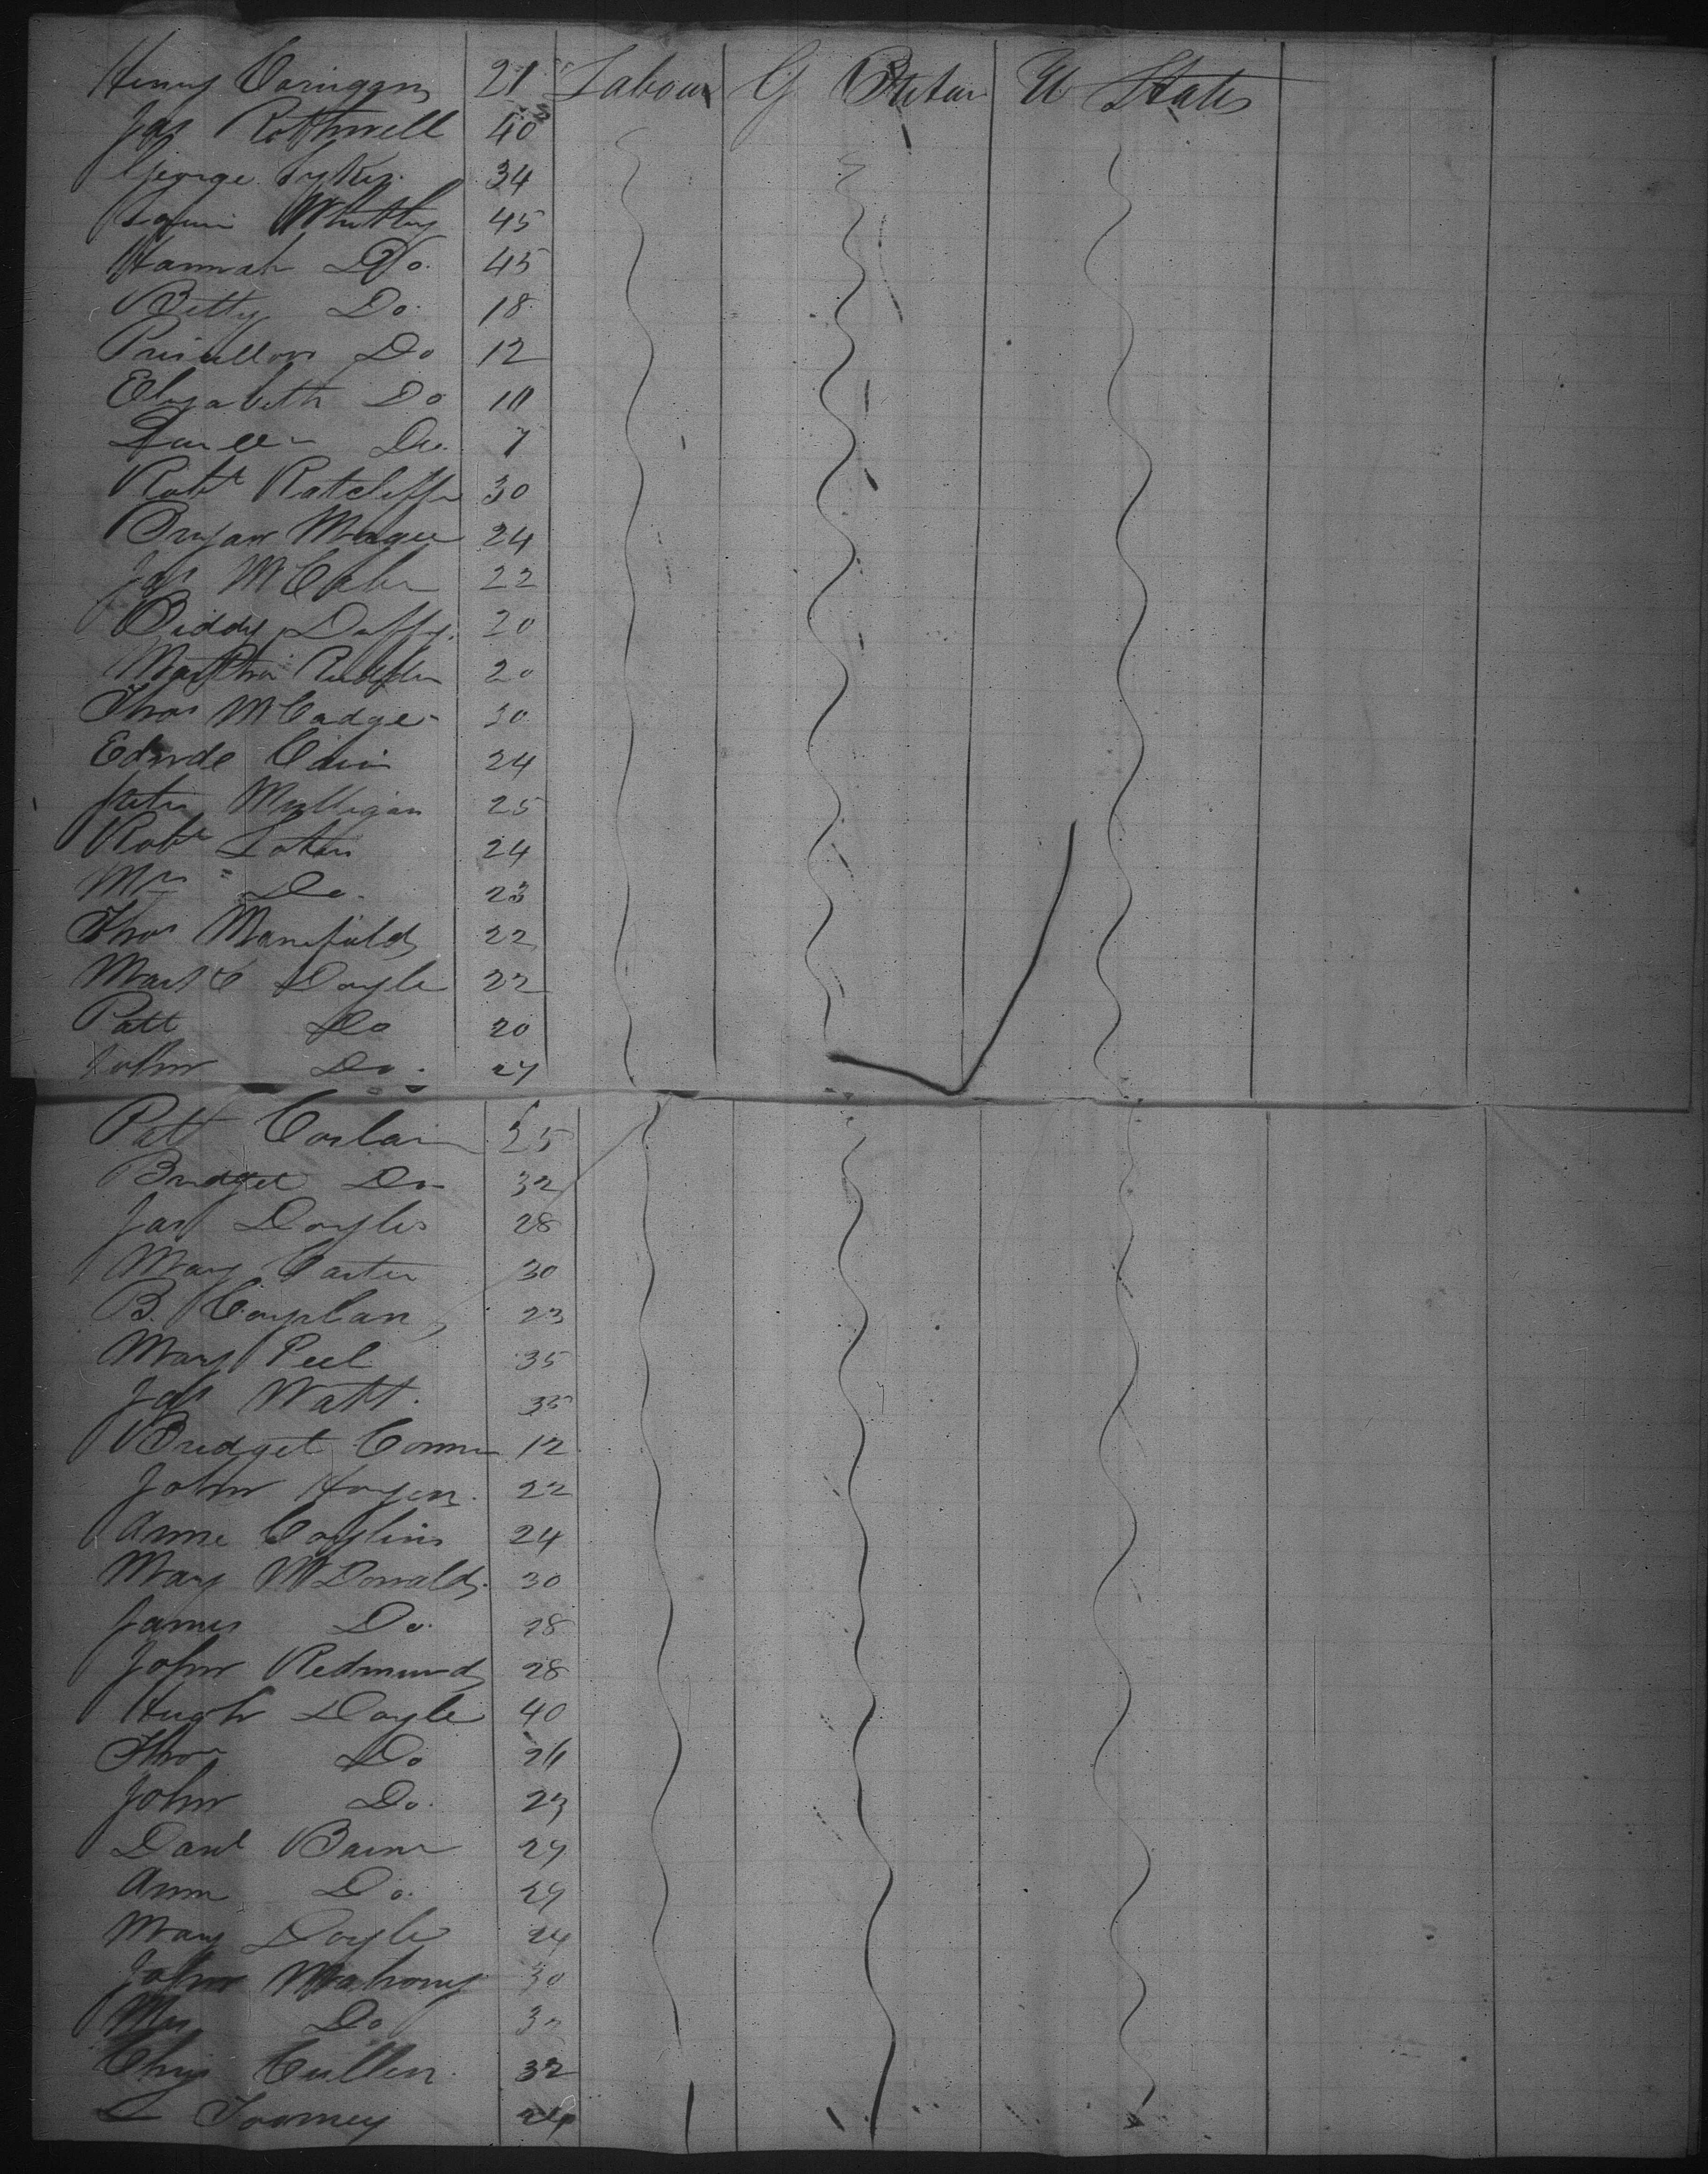 Henry Corrigan 21 Labour G Britain U States
Jas Rothwell 40
George Sykes 34
Whitley 45
Hannah Do. 45
Betty Do. 18
Do 12
Elizabeth Do 10
Do. 7
Robt Ratcliffe 30
Bryan Magee 24
Jas McCabe 22
Biddy Duffy. 20
Martha 20
Thos McCadge 30
Edwde 24
Peter Mulligan 25
Robt 24
Mrs Do. 23
Thos Manifold 22
Doyle 22
Patt Do 20
John Do. 27
Patt 25
Bridget Do 32
Jas Doyle 28
Mary Carter 30
B. 23
Mary Peel 35
Jas Watt. 35
Bridget 12
John Hogen. 22
Anne 24
Mary McDonald 30
James Do. 28
John Redmund 28
Hugh Doyle 40
Thos Do 26
John Do. 23
Danl 29
Ann Do. 29
Mary Doyle 24
John Mahony 30
Mrs Do
Chris Cullen. 32
Toomey